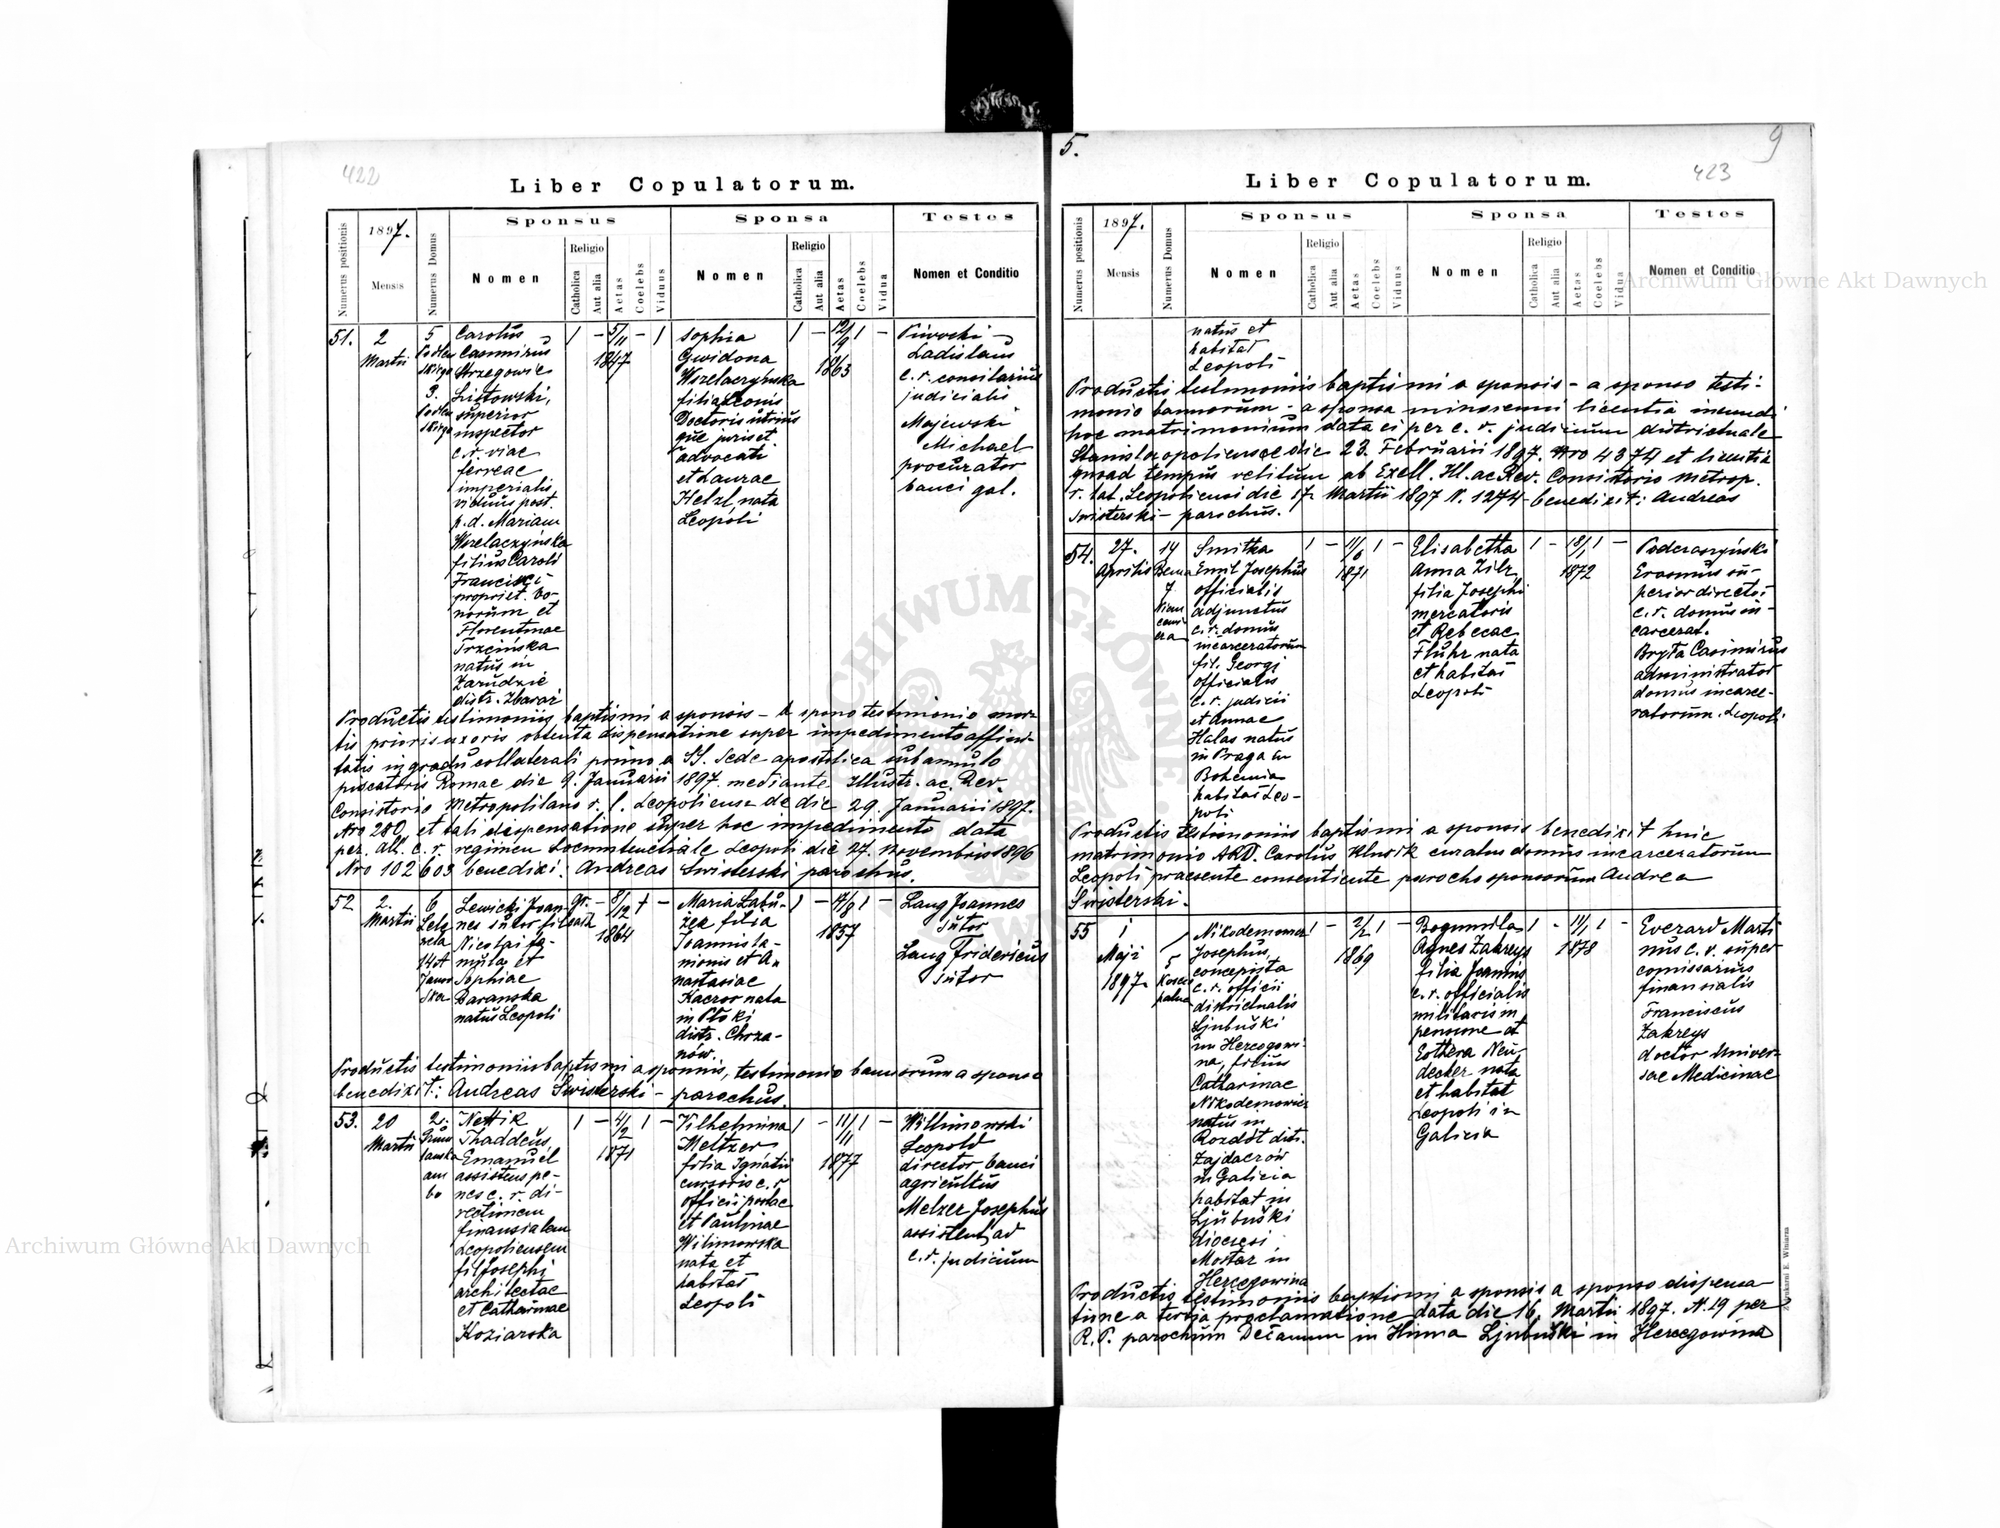 422
Liber Copulatorum.
Numerus positionis
1897.
Mensis
Numerus Domus
Sponsus
Nomen
Religio
Catholica
Aut alia
Aetas
Coelebs
Viduus
Sponsa
Nomen
Religio
Catholica
Aut alia
Aetas
Coelebs
Vidua
Testes
Nomen et Conditio
51.
2
Martii
5
3.
Carolus
Casimirus
Strzegowic
Listowski,
superior
inspector
c.r. viae
ferreae
imperialis
viduus post.
p.d. Mariam
Wszelaczyńska
filius Caroli
Francisci
propriet. bo-
norum et
Florentinae
Trzcińska
natus in
Zarudzie
distr. Zbaraż
1 – 5/11 – 1
1847
Sophia
Gwidona
Wszelaczyńska
filia Leonis
Doctoris utrius
que juris et
advocati
et Laurae
Helzl nata
Leopoli
1 – 12/9 1 –
1863
Piwocki
Ladislaus
c.r. consiliarius
judicialis
Majewski
Michael
procurator
banci gal.
Productis testimoniis baptismi a sponsis – a sponso testimonio mor-
tis prioris uxoris obtenta dispensatione super impedimento affini-
tatis in gradu collaterali primo a SS. Sede apostolica sub annulo
piscatoris Romae die 9. Januarii 1897. mediante Illustr. ac. Rev.
Consistorio Metropolitano r. l. Leopoliense de die 29. Januarii 1897.
Nro 280 et tali dispensatione super hoc impedimento data
per. Alt. c. r. regimen Locumtenentiale Leopoli die 27. Novembris 1896
Nro 102603 benedixi: Andreas Swisterski parochus.
52
2.
Martii
6
14 A
Janow
ska
Lewicki Joan-
nes sutor fil
Nicolai fa-
muli et
Sophiae
Baranska
natus Leopoli
gr. – 8/12 1 –
1864
Maria Łabu-
żek filia
Joannis la-
nionis et A-
nastasiae
Kaczor nata
in Płoki
distr. Chrza-
nów.
1 – 4/8 1 –
1857
Lang Joannes
sutor
Lang Fridericus
sutor
Productis testimoniis baptismi a sponsis, testimonio bannorum a sponso
benedixit: Andreas Swisterski – parochus.
53.
20
Martii
2.
Nettik
Thaddeus
Emanuel
assistens pe-
nes c. r. di-
rectionem
finansialem
Leopoliensem
fil Josephi
architectae
et Catharinae
Koziarska
1 – 4/2 1 –
1871
Vilhelmina
Meltzer
filia Ignatii
cursoris c. r
officii postae
et Paulinae
Wilimowska
nata et
habitat
Leopoli
1 – 11/11 –
1877
Willimowski
Leopold
director banci
agricultus
Melzer Josephus
assistent ad
c.r. judicium
5.
9
423
Liber Copulatorum.
Numerus positionis
1897.
Mensis
Numerus Domus
Sponsus
Nomen
Religio
Catholica
Aut alia
Aetas
Coelebs
Viduus
Sponsa
Nomen
Religio
Catholica
Aut alia
Aetas
Coelebs
Vidua
Testes
Nomen et Conditio
natus et
habitat
Leopoli
Productis testimoniis baptismi a sponsis – a sponso testi-
monio bannorum – a sponsa minorenni licentia ineundi
hoc matrimonium data ei per c. r. judicium districtuale
Stanislaopoliense die 23. Februarii 1897. Nro 4374 et licentia
quoad tempus vetitum ab Excll. Ill. ac Rev. Consistorio metrop.
r. lat. Leopoliensi die 17 Martii 1897 N. 1274 – benedixit: Andreas
Swisterski – parochus.
54.
27.
Aprilis
14
Bema
7.
Smitka
Emil Josephus
officialis
adjunctus
c.r. domus
incarceratorum
fil. Georgi
officialis
c.r. judicii
et Annae
Halas natus
in Praga in
Bohemia
habitat Leo-
poli
1 – 11/6 1 –
1871
Elisabetha
Anna Zilz
filia Josephi
mercatoris
et Rebecae
Fluhr nata
et habitat
Leopoli
1 – 18/1 1 –
1872
Podczaszyński
Erasmus su-
perior director
c.r. domus in-
carcerat.
Bryła Casimirus
administrator
domus incarce-
ratorum. Leopoli
Productis testimoniis baptismi a sponsis benedixit huic
matrimonio ARD. Carolus Klusik curatus domus incarceratorum
Leopoli praesente consentiente parocho sponsorum Andrea
Swisterski.
55
1
Maji
1897.
5
Nikodemowicz
Josephus,
concepista
c.r. officii
districtualis
Ljubuški
in Hercogowi-
na, filius
Catharinae
Nikodemowicz
natus in
Rozdół distr.
Żydaczów
in Galicia
habitat in
Ljubuški
diocesi
Mostar in
Hercegowina
1 – 2/2 1 –
1869
Bogumiła
Agnes Zakreys
filia Joannis
c.r. officialis
militaris in
pensione et
Esthera Neu-
decker nata
et habitat
Leopoli in
Galicia
1 – 11/1 1 –
1878
Everard Marti
nus c. r. super
comissarius
finansialis
Franciscus
Zakreys
doctor univer-
sae Medicinae
Productis testimoniis baptismi a sponsis a sponso dispensa-
tione a tertia proclamatione data die 16. Martii 1897. N. 19 per
R. P. parochum Dečanum in Humac Ljubuški in Hercegowina
Z drukarni E. Winiarza
Archiwum Główne Akt Dawnych
Archiwum Główne Akt Dawnych
ARCHIWUM GŁÓWNE AKT DAWNYCH